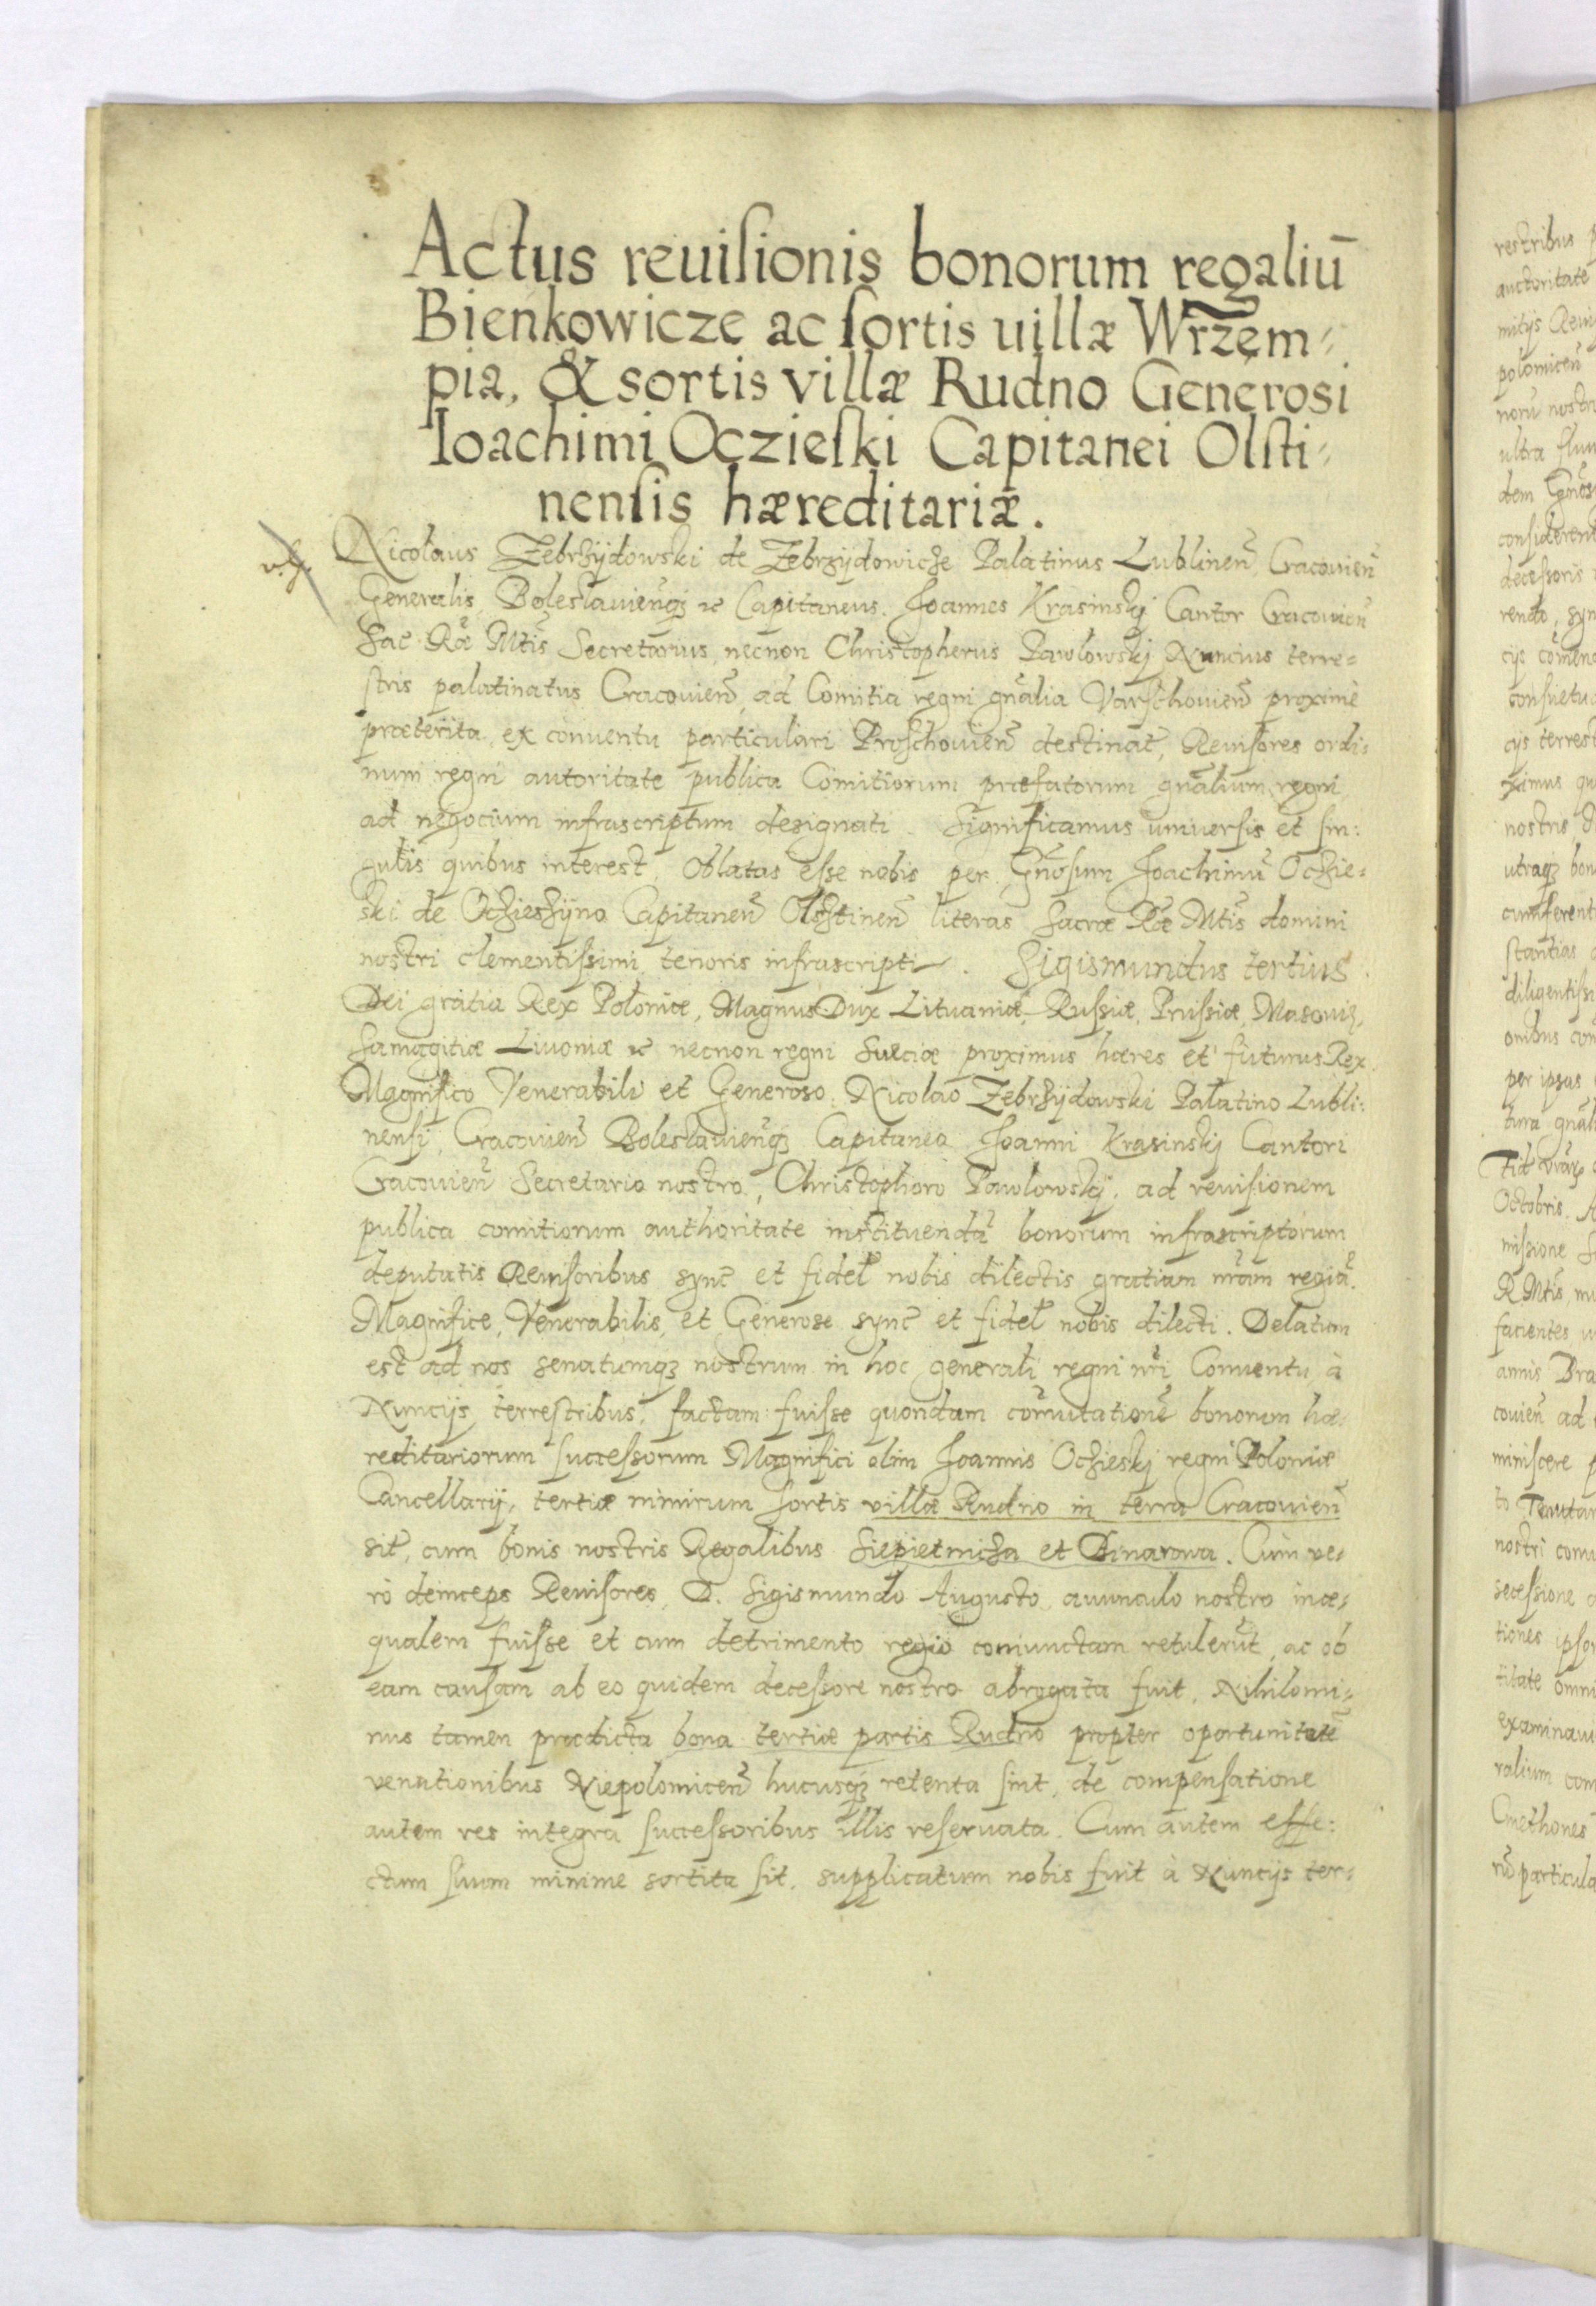 Actus reuisionis bonorum regaliū
Bieńkowicze ac sortis uillæ Wrzem⸗
pia, & sortis villæ Rudno Generosi
Ioachimi Oczieski Capitanei Olsti⸗
nensis hæreditariæ.
Nicolaus Zebrzÿdowski de Zebrzÿdowicze Palatinus Lublineñ Cracouieñ
Generalis, Boleslauieñqȝ ⁊c Capitaneus. Joannes Krasinskj Cantor Cracouieñ
Sac Ræ Mtis Secretarius, necnon Christopherus Pawlowskj Nuncius terre⸗
stris palatinatus Cracouieñ, ad Comitia regni gñalia Varschouieñ proxime
præterita, ex conuentu particulari Proschouieñ destinat̃, Reuisores ordi⸗
num regni autoritate publica Comitiorum præfatorum gñalium regni
ad negocium infrascriptum designati. Significamus uniuersis et sin:
gulis quibus interest, Oblatas esse nobis per Gñosum Joachimũ Oczie⸗
ski de Oczieszÿno Capitaneũ Olstineñ literas Sacræ Ræ Mtis domini
nostri clementissimi tenoris infrascripti. Sigismundus tertius
Dei gratia Rex Poloniæ, Magnus Dux Lituaniæ, Russiæ, Prussiæ, Masouię,
Samogitiæ Liuoniæ ⁊c necnon regni Sueciæ proximus hæres et futurus Rex.
Magnifico Venerabili et Generoso. Nicolao Zebrzÿdowski Palatino Lubli:
nensi, Cracouieñ Boleslauieñqȝ Capitaneo Joanni Krasinskj Cantori
Cracouieñ Secretario nostro, Christophoro Pawlowskj, ad reuisionem
publica comitiorum authoritate instituendã bonorum infrascriptorum
deputatis Reuisoribus sync̃ et fidel̃ nobis dilectis gratiam nr̃am regiã.
Magnifice, Venerabilis, et Generose sync̃ et fidel̃ nobis dilecti. Delatum
est ad nos senatumqȝ nostrum in hoc generali regni nr̃i Conuentu à
Nuncijs terrestribus, factam fuisse quondam com̃utationẽ bonorum hæ⸗
reditariorum successorum Magnifici olim Joannis Oczieskj regni Poloniæ
Cancellarij, tertiæ nimirum sortis villæ Rudno in terra Cracouieñ
sit̃, cum bonis nostris Regalibus Siepietnicza et Binarowa. Cùm ve⸗
rò deinceps Reuisores, D. Sigismundo Augusto auunculo nostro inæ⸗
qualem fuisse et cum detrimento regio coniunctam retulerũt, ac ob
eam causam ab eo quidem decessore nostro abrogata fuit, Nihilomi⸗
nus tamen prædicta bona tertiæ partis Rudno propter oportunitatẽ
venationibus Niepolomiceñ hucusqȝ retenta sint, de compensatione
autem res integra successoribus illis reseruata. Cum autem effe:
ctum suum minime sortita sit, supplicatum nobis fuit à Nuncijs ter⸗